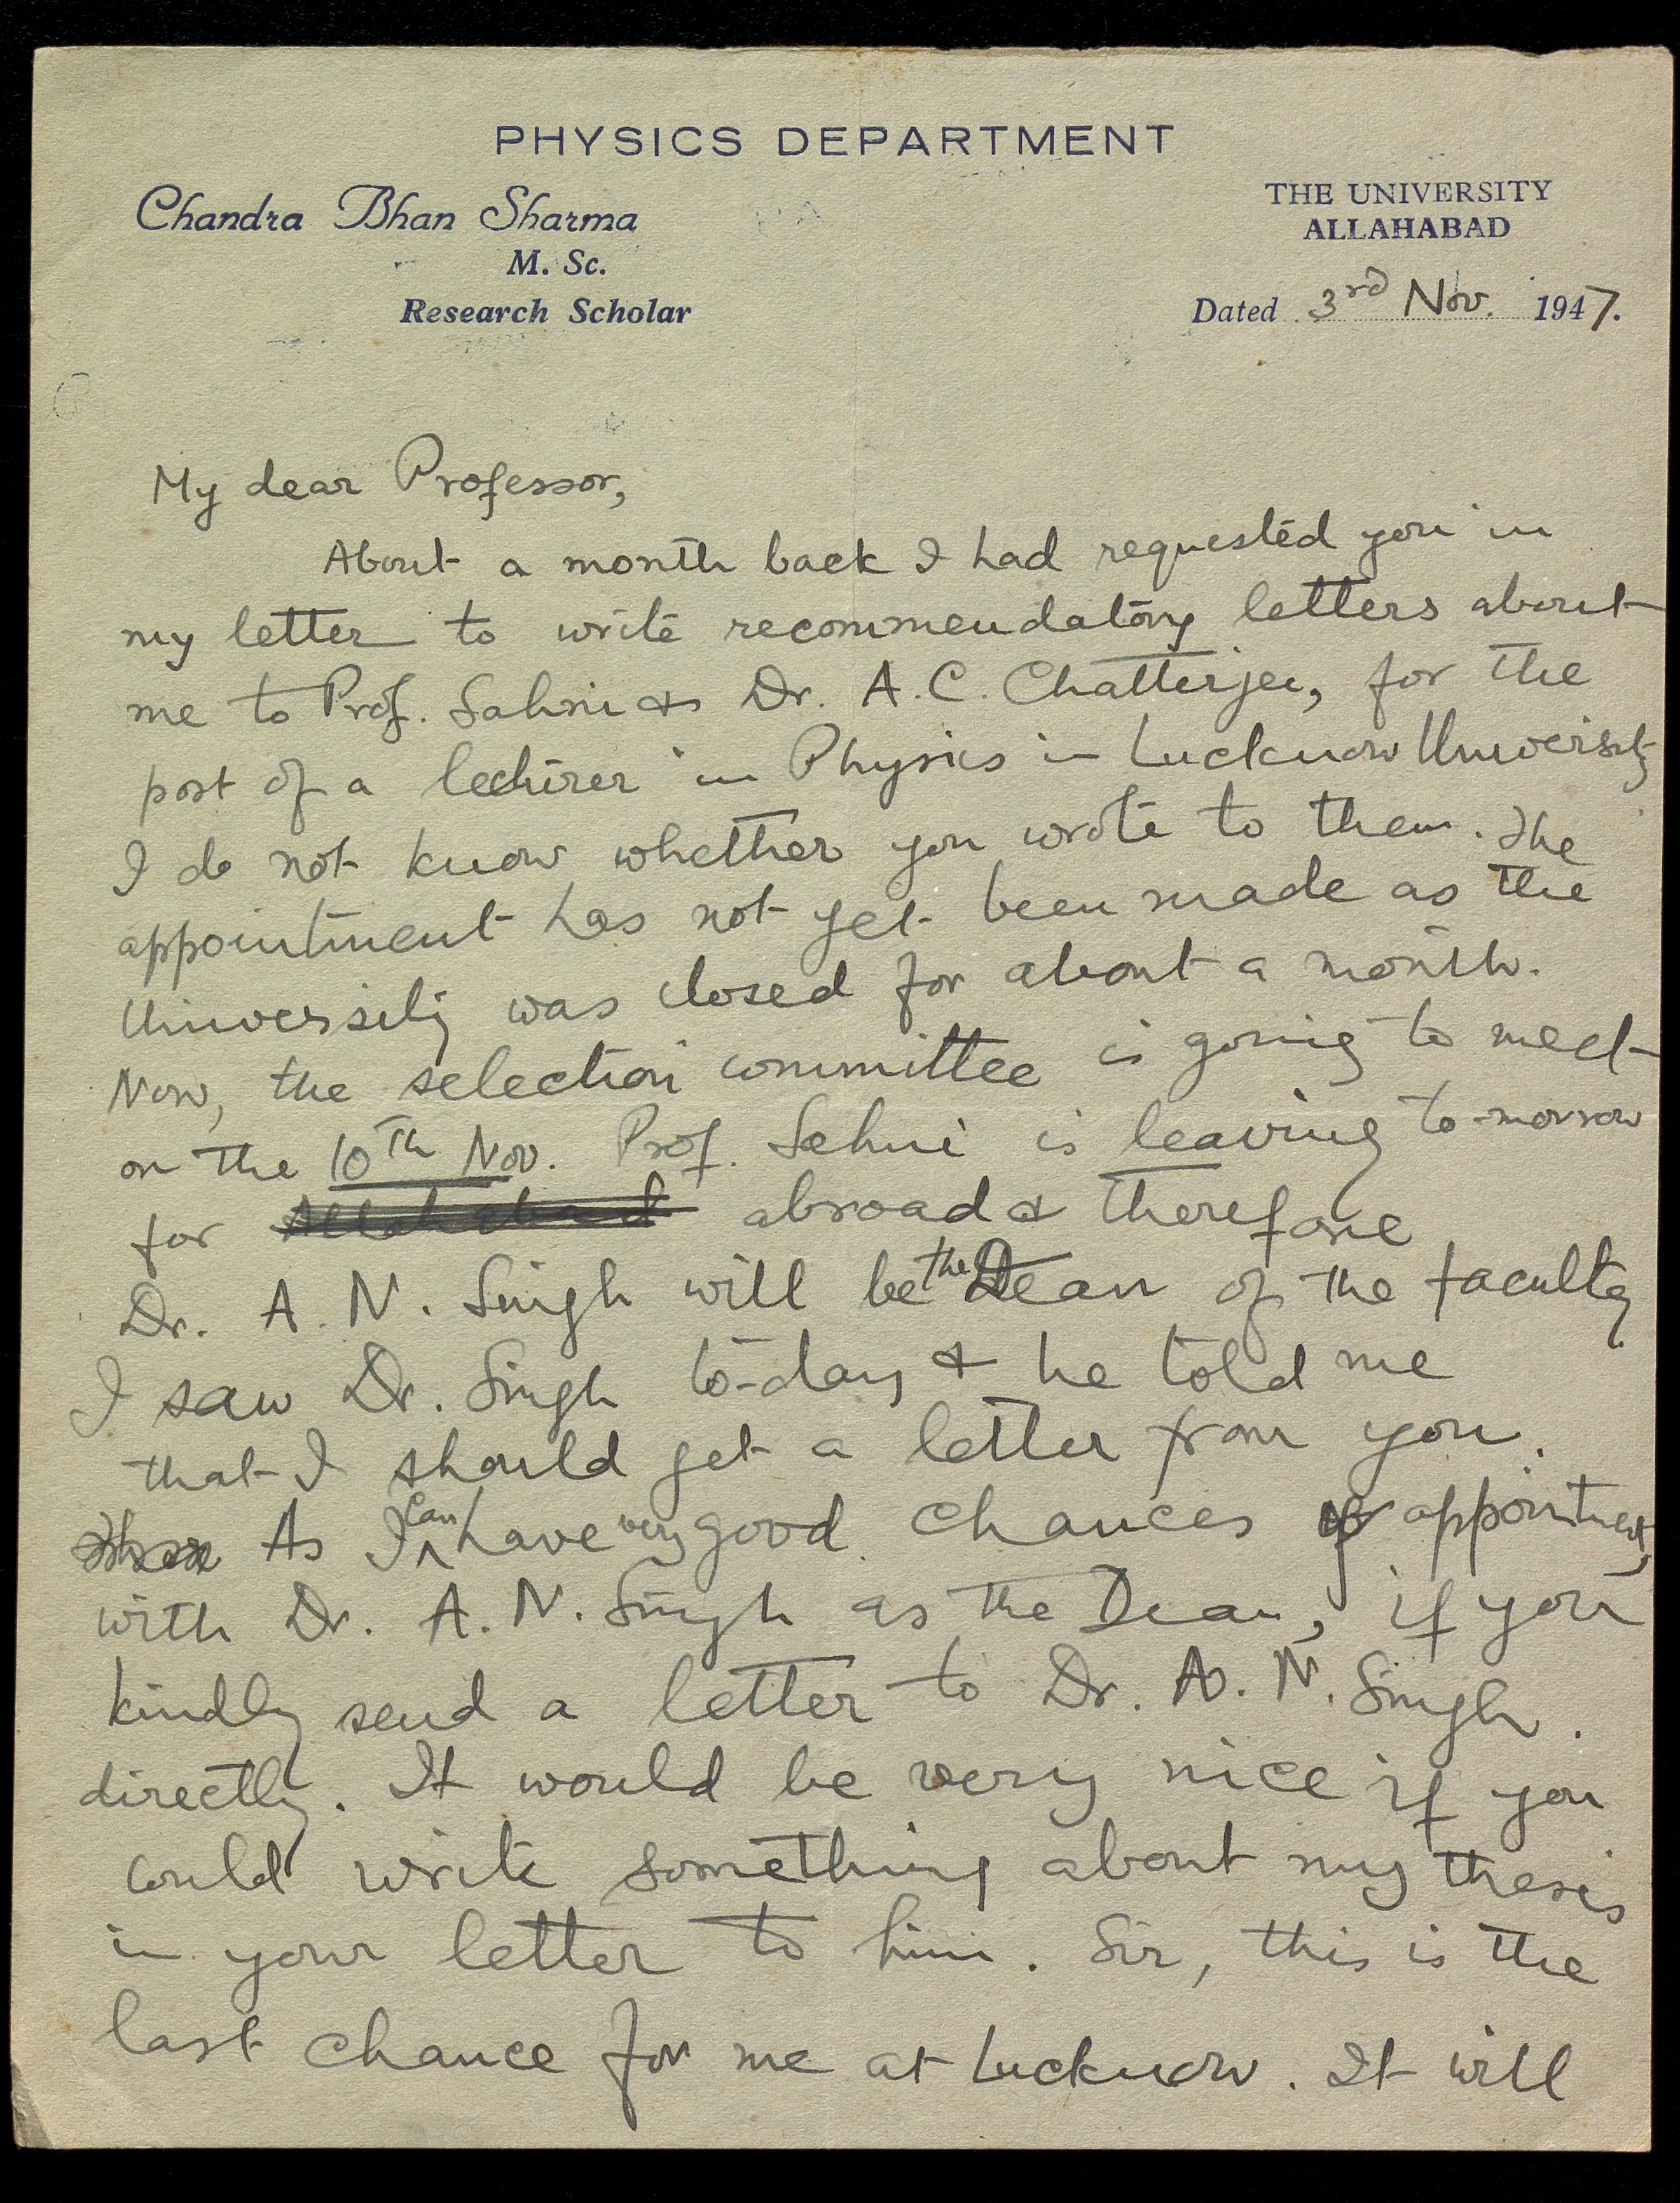 PHYSICS DEPARTMENT
Chandra Bhan Sharma
M. Sc.
Research Scholar
THE UNIVERSITY
ALLAHABAD
Dated 3rd Nov. 1947.
My dear Professor,
About a month back I had requested you in
my letter to write recommendatory letters about
me to Prof. Sahni & Dr. A. C. Chatterjee, for the
post of a lecturer in Physics in Lucknow University
I do not know whether you wrote to them. The
appointment has not yet been made as the
University was closed for about a month.
Now, the selection committee is going to meet
on the 10th Nov. Prof. Sahni is leaving to-morrow
for Allahabad abroad & therefore
Dr. A. N. Singh will be the Dean of the faculty
I saw Dr. Singh to-day & he told me
that I should get a letter from you.
As I can have very good chances of appointment,
with Dr. A. N. Singh as the Dean, if you
kindly send a letter to Dr. A. N. Singh.
directly. It would be very nice if you
could write something about my thesis
in your letter to him. Sir, this is the
last chance for me at Lucknow. It will